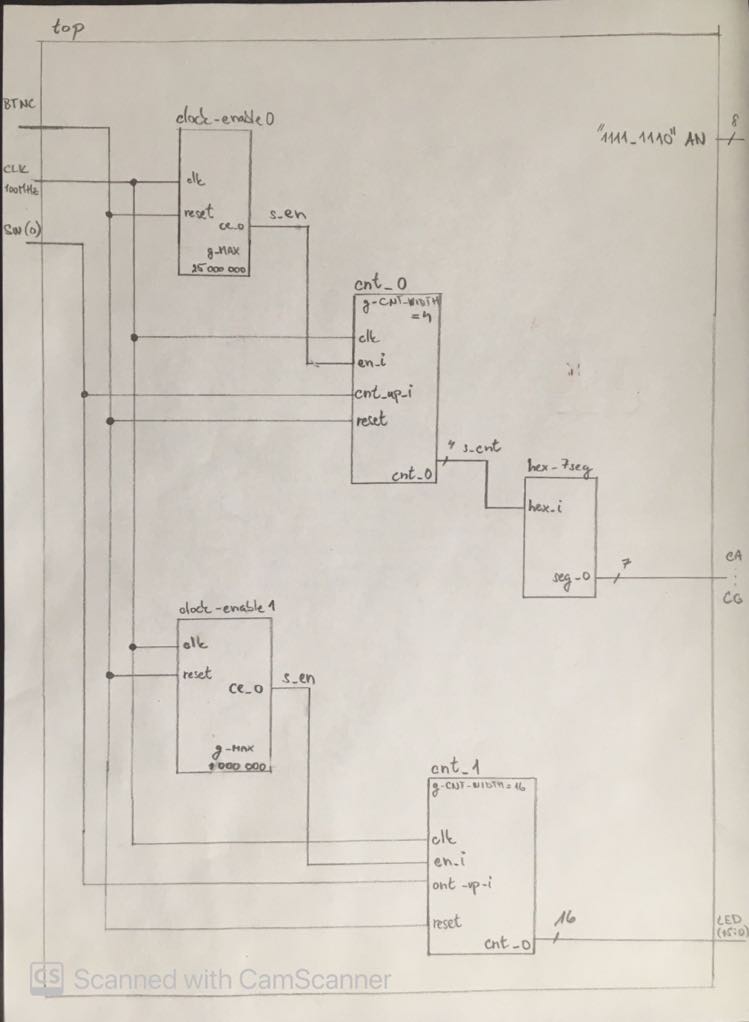 top
BTNC
CLK
100MHz
SW(0)
"1111_1110" AN
8
clock-enable0
clk
reset
ce_0
g-MAX
25 000 000
s_en
cnt_0
g-CNT-WIDTH
=4
clk
en_i
cnt_up_i
reset
cnt_0
4 s_cnt
hex-7seg
hex_i
seg_0
7
CA
CG
clock-enable1
clk
reset
ce_0
g-MAX
1 000 000
s_en
cnt_1
g-CNT-WIDTH=16
clk
en_i
cnt_up_i
reset
cnt_0
16
LED
(15:0)
CS Scanned with CamScanner